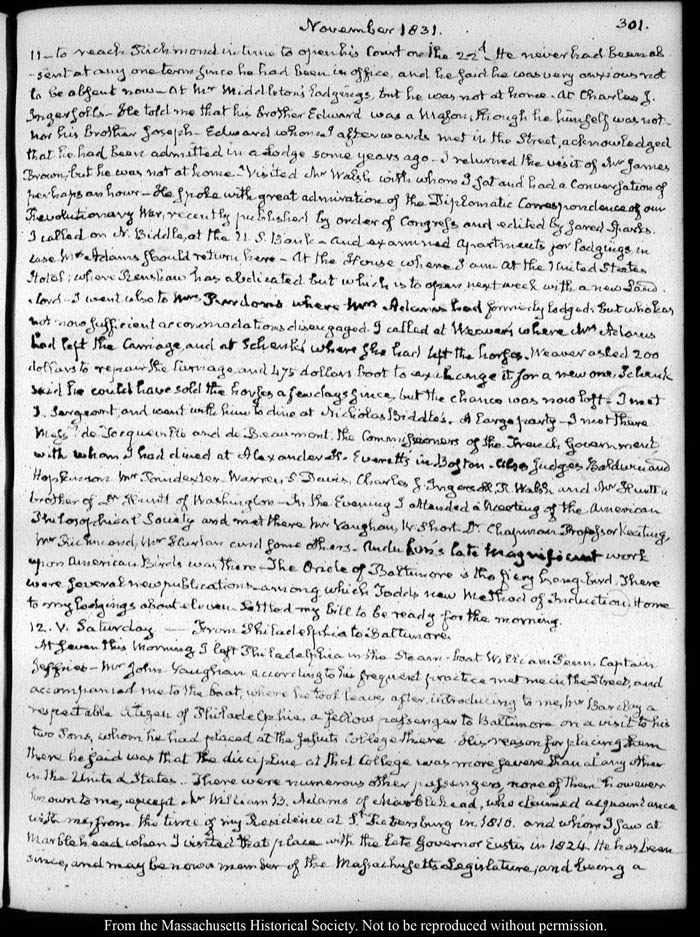 November 1831.
301.
11 — to reach Richmond in time to open his Court on the 22d. He never had been ab
-sent at any one term since he had been in office, and he said he was very anxious not
to be absent now — At Mr Middleton's lodgings, but he was not at home. At Charles J.
Ingersoll's — He told me that his brother Edward was a Mason, though he himself was not —
nor his brother Joseph — Edward whom I afterwards met in the Street, acknowledged
that he had been admitted in a Lodge some years ago. I returned the visit of Mr James
Brown, but he was not at home. Visited Mr Walsh with whom I sat and had a conversation of
perhaps an hour — He spoke with great admiration of the Diplomatic Correspondence of our
Revolutionary War, recently published by order of Congress and edited by Jared Sparks.
I called on N. Biddle, at the U. S. Bank — and examined apartments for lodgings, in
case Mrs Adams should return here — At the House where I am at the United States
Hotel; where Renshaw has abdicated but which is to open next week with a new Land
-lord — I went also to Mrs Purdon's where Mrs Adams had formerly lodged. but who has
not now sufficient accommodations disengaged. I called at Weaver's where Mrs Adams
had left the Carriage, and at Schenk's where she had left the horses. Weaver asked 200
dollars to repair the Carriage, and 475 dollars boot to exchange it for a new one. Schenk
said he could have sold the horses a few days since, but the chance was now lost — I met
J. Sergeant, and went with him to dine at Nicholas Biddle's. A large party — I met there
Messrs de Tocqueville and de Beaumont, the Commissioners of the French Government
with whom I had dined at Alexander H. Everett's in Boston. Also Judges Baldwin and
Hopkinson Mr Poindexter. Warren R. Davis, Charles J. Ingersoll, R. Walsh and Mr Huntt a
brother of Dr Huntt of Washington — In the Evening I attended a Meeting of the American
Philosophical Society and met there Mr Vaughan, W. Short. Dr Chapman Professor Keating,
Mr Richmond, Mr and some others — Audubon's late magnificent work
upon American Birds was there — The Oriole of Baltimore is the fiery hang-bird. There
were several new publications — among which Todd's new Method of Induction. Home
to my lodgings about eleven. Settled my bill to be ready for the morning.
12. V. Saturday — From Philadelphia to Baltimore.
At seven this Morning I left Philadelphia in the Steam-boat William Penn, Captain
Jeffries — Mr John Vaughan according to his frequent practice met me in the Street, and
accompanied me to the boat, where he took leave, after introducing to me, Mr Barclay a
respectable Citizen of Philadelphia, a fellow passenger to Baltimore on a visit to his
two Sons, whom he had placed at the Jesuits College there His reason for placing them
there he said was that the discipline at that College was more severe than at any other
in the United States. There were numerous other passengers, none of them however
known to me, except Mr William B. Adams of Marblehead, who claimed acquaintance
with me, from the time of my Residence at St Petersburg in 1810. and whom I saw at
Marblehead when I visited that place with the late Governor Eustis in 1824. He has been
since, and may be now a member of the Massachusetts Legislature, and being a
From the Massachusetts Historical Society. Not to be reproduced without permission.